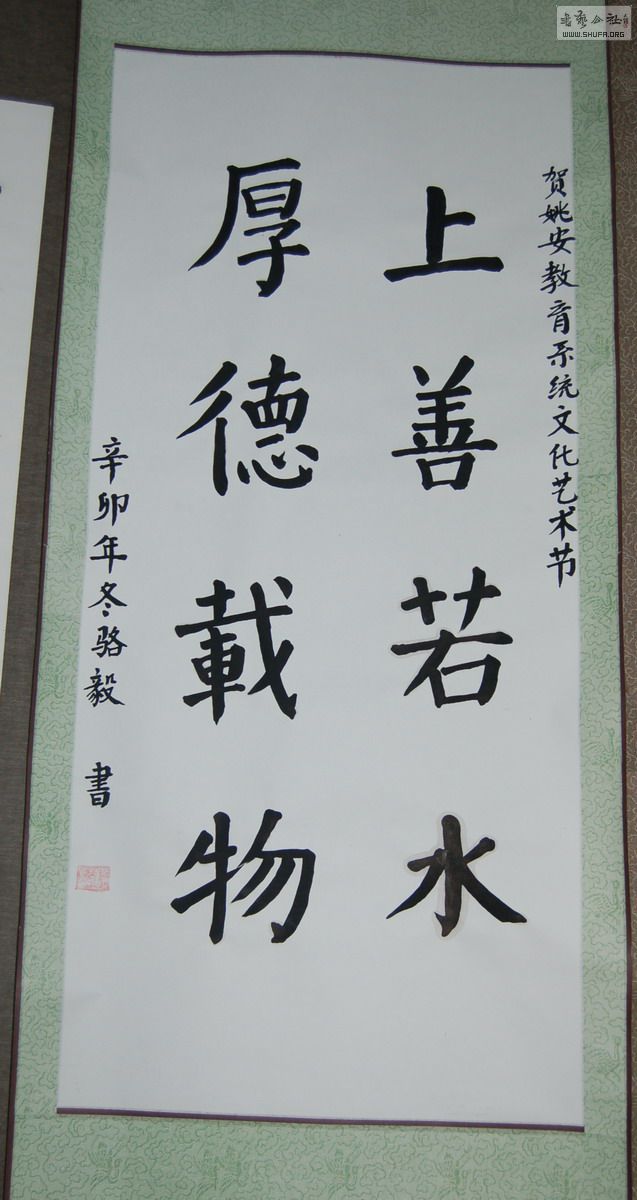 贺姚安教育系统文化艺术节
上善若水
厚德載物
辛卯年冬骆毅 書
WWW.SHUFA.ORG